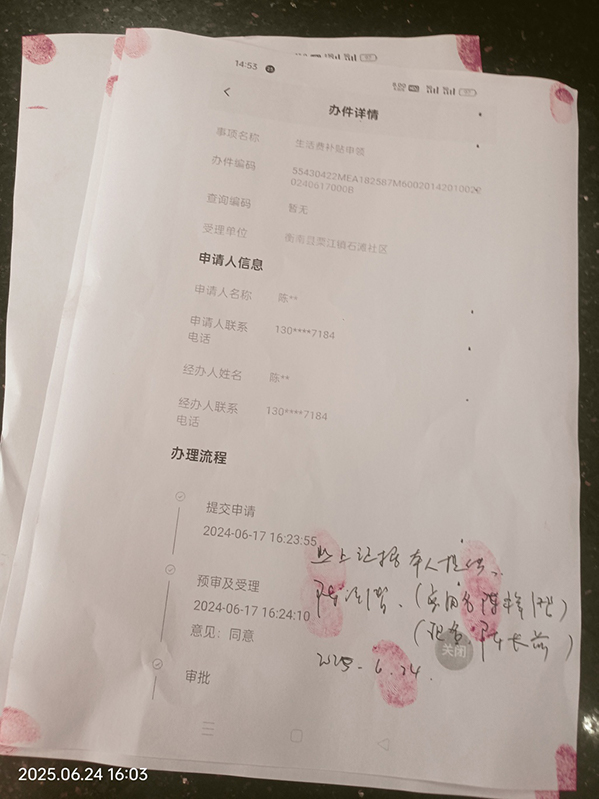 14:53
办件详情
事项名称 生活费补贴申领
办件编码 55430422MEA182587M60020142010022
0240617000B
查询编码 暂无
受理单位 衡南县栗江镇石滩社区
申请人信息
申请人名称 陈**
申请人联系 130****7184
电话
经办人姓名 陈**
经办人联系 130****7184
电话
办理流程
提交申请
2024-06-17 16:23:55
预审及受理
2024-06-17 16:24:10
意见：同意
审批
以上证据本人提供、
关闭
2025.6.24.
2025.06.24 16:03